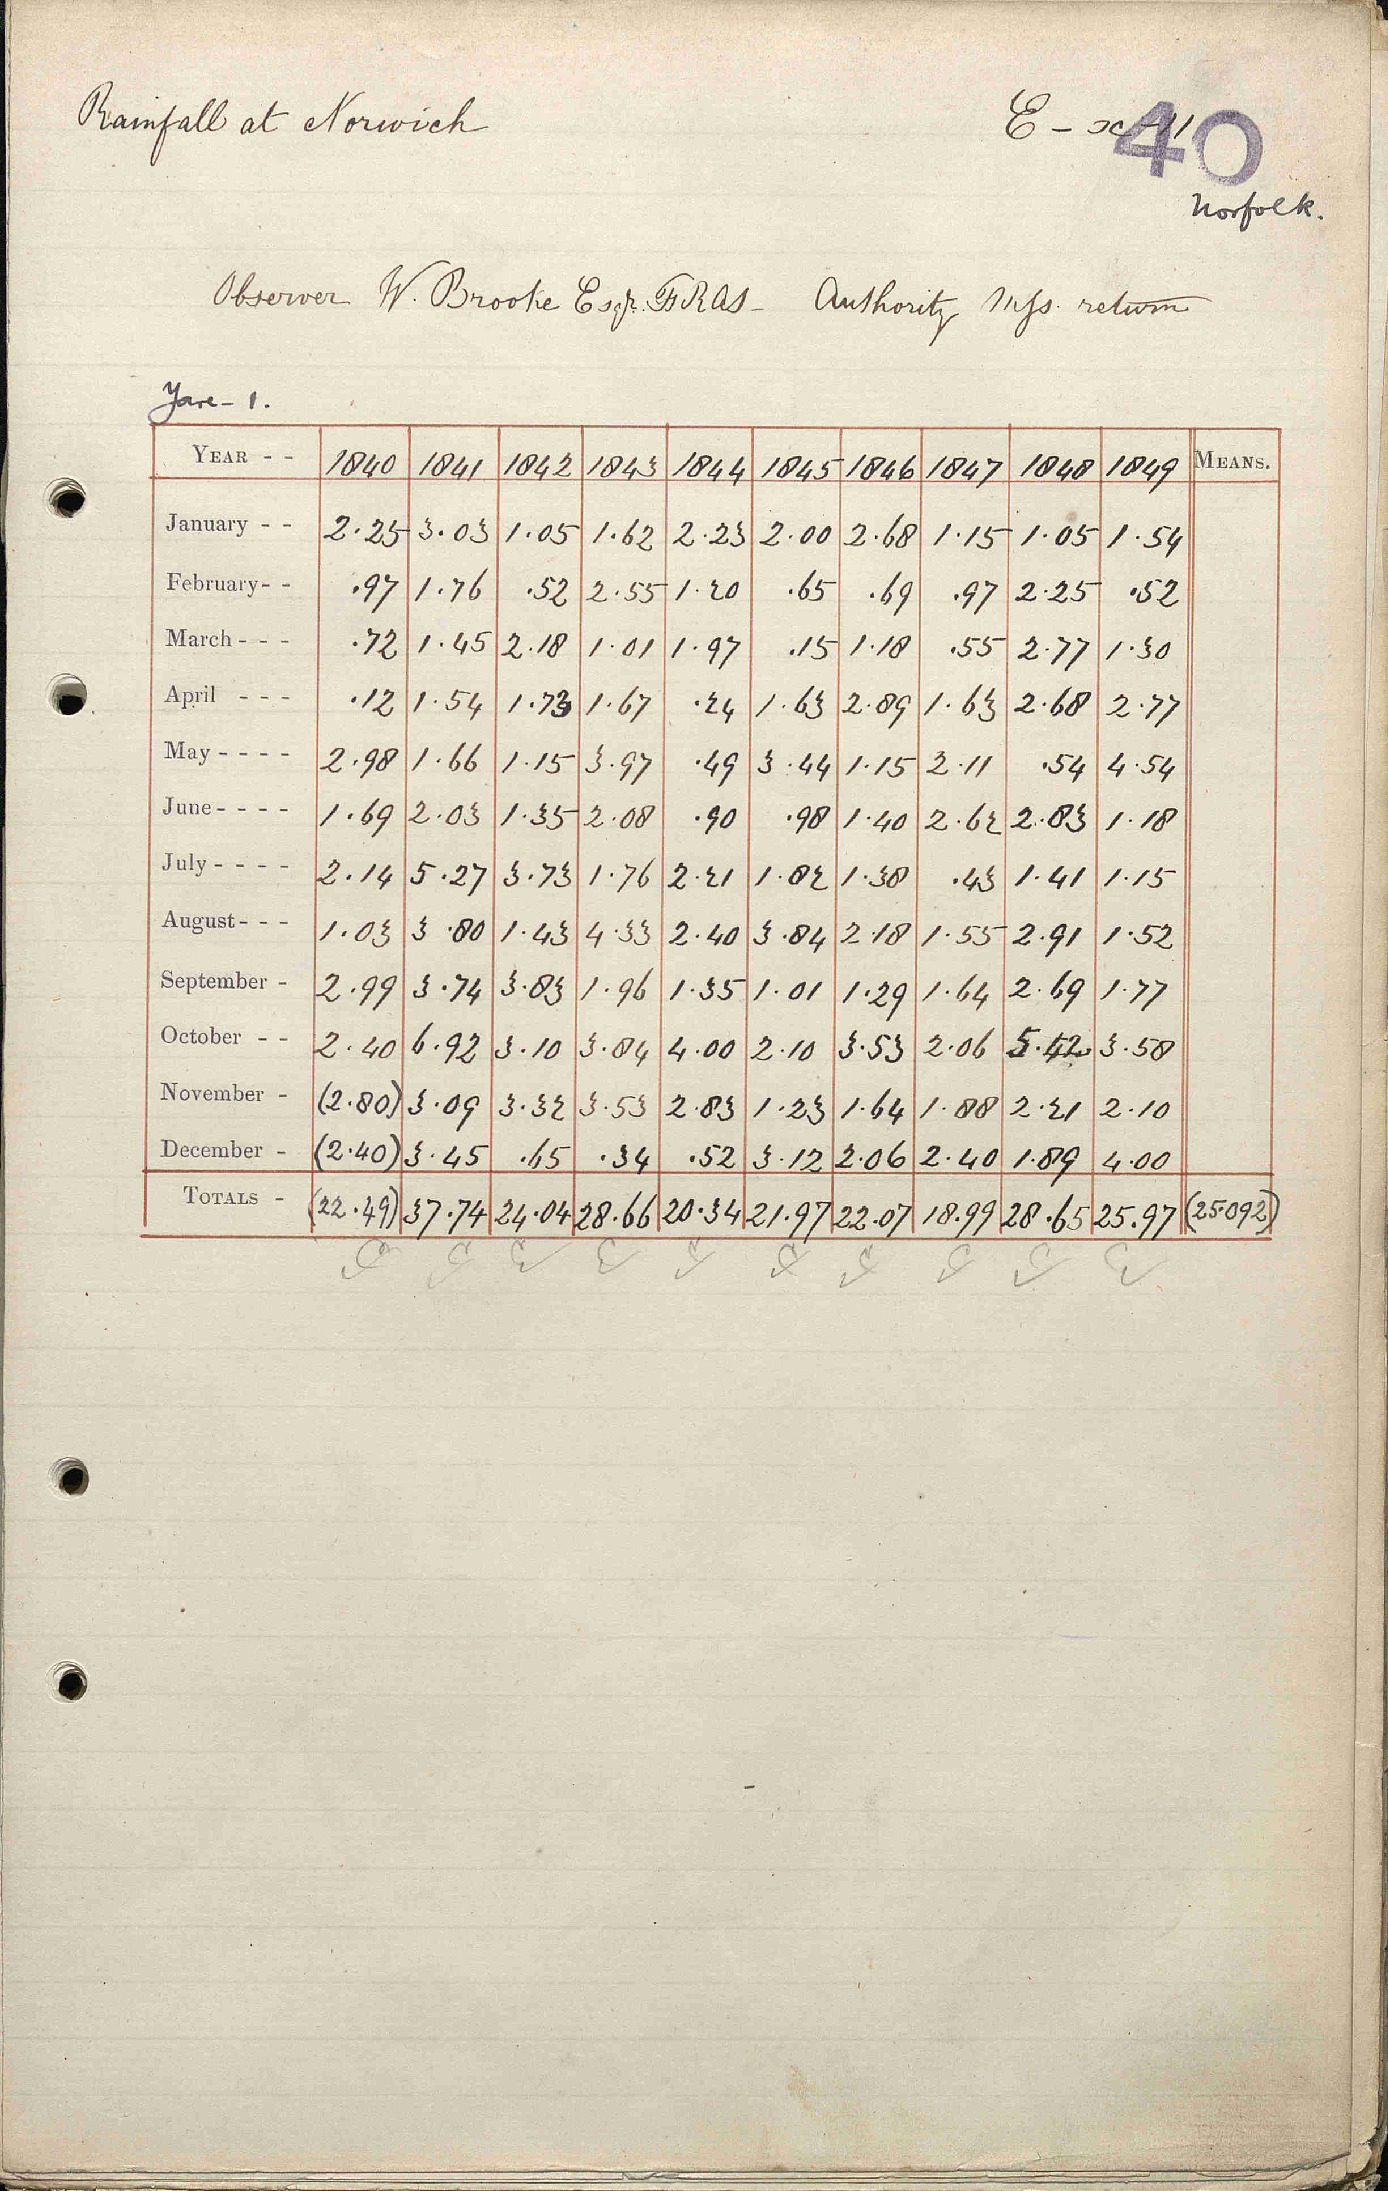 Rainfall at Norwich
E - x - 11
40
Norfolk.
Observer W. Brooke Esqr. FRAS - Authority Mss. return
Yare - 1.
YEAR - - 1840 1841 1842 1843 1844 1845 1846 1847 1848 1849 MEANS.
January - - 2.25 3.03 1.05 1.62 2.23 2.00 2.68 1.15 1.05 1.54
February - - .97 1.76 .52 2.55 1.20 .65 .69 .97 2.25 .52
March - - - .72 1.45 2.18 1.01 1.97 .15 1.18 .55 2.77 1.30
April - - - .12 1.54 1.73 1.67 .24 1.63 2.89 1.63 2.68 2.77
May - - - - 2.98 1.66 1.15 3.97 .49 3.44 1.15 2.11 .54 4.54
June - - - - 1.69 2.03 1.35 2.08 .90 .98 1.40 2.62 2.83 1.18
July - - - - 2.14 5.27 3.73 1.76 2.21 1.82 1.38 .43 1.41 1.15
August - - - 1.03 3.80 1.43 4.33 2.40 3.84 2.18 1.55 2.91 1.52
September - 2.99 3.74 3.83 1.96 1.35 1.01 1.29 1.64 2.69 1.77
October - - 2.40 6.92 3.10 3.84 4.00 2.10 3.53 2.06 5.42 3.58
November - (2.80) 3.09 3.32 3.53 2.83 1.23 1.64 1.88 2.21 2.10
December - (2.40) 3.45 .65 .34 .52 3.12 2.06 2.40 1.89 4.00
TOTALS - (22.49) 37.74 24.04 28.66 20.34 21.97 22.07 18.99 28.65 25.97 (25.092)